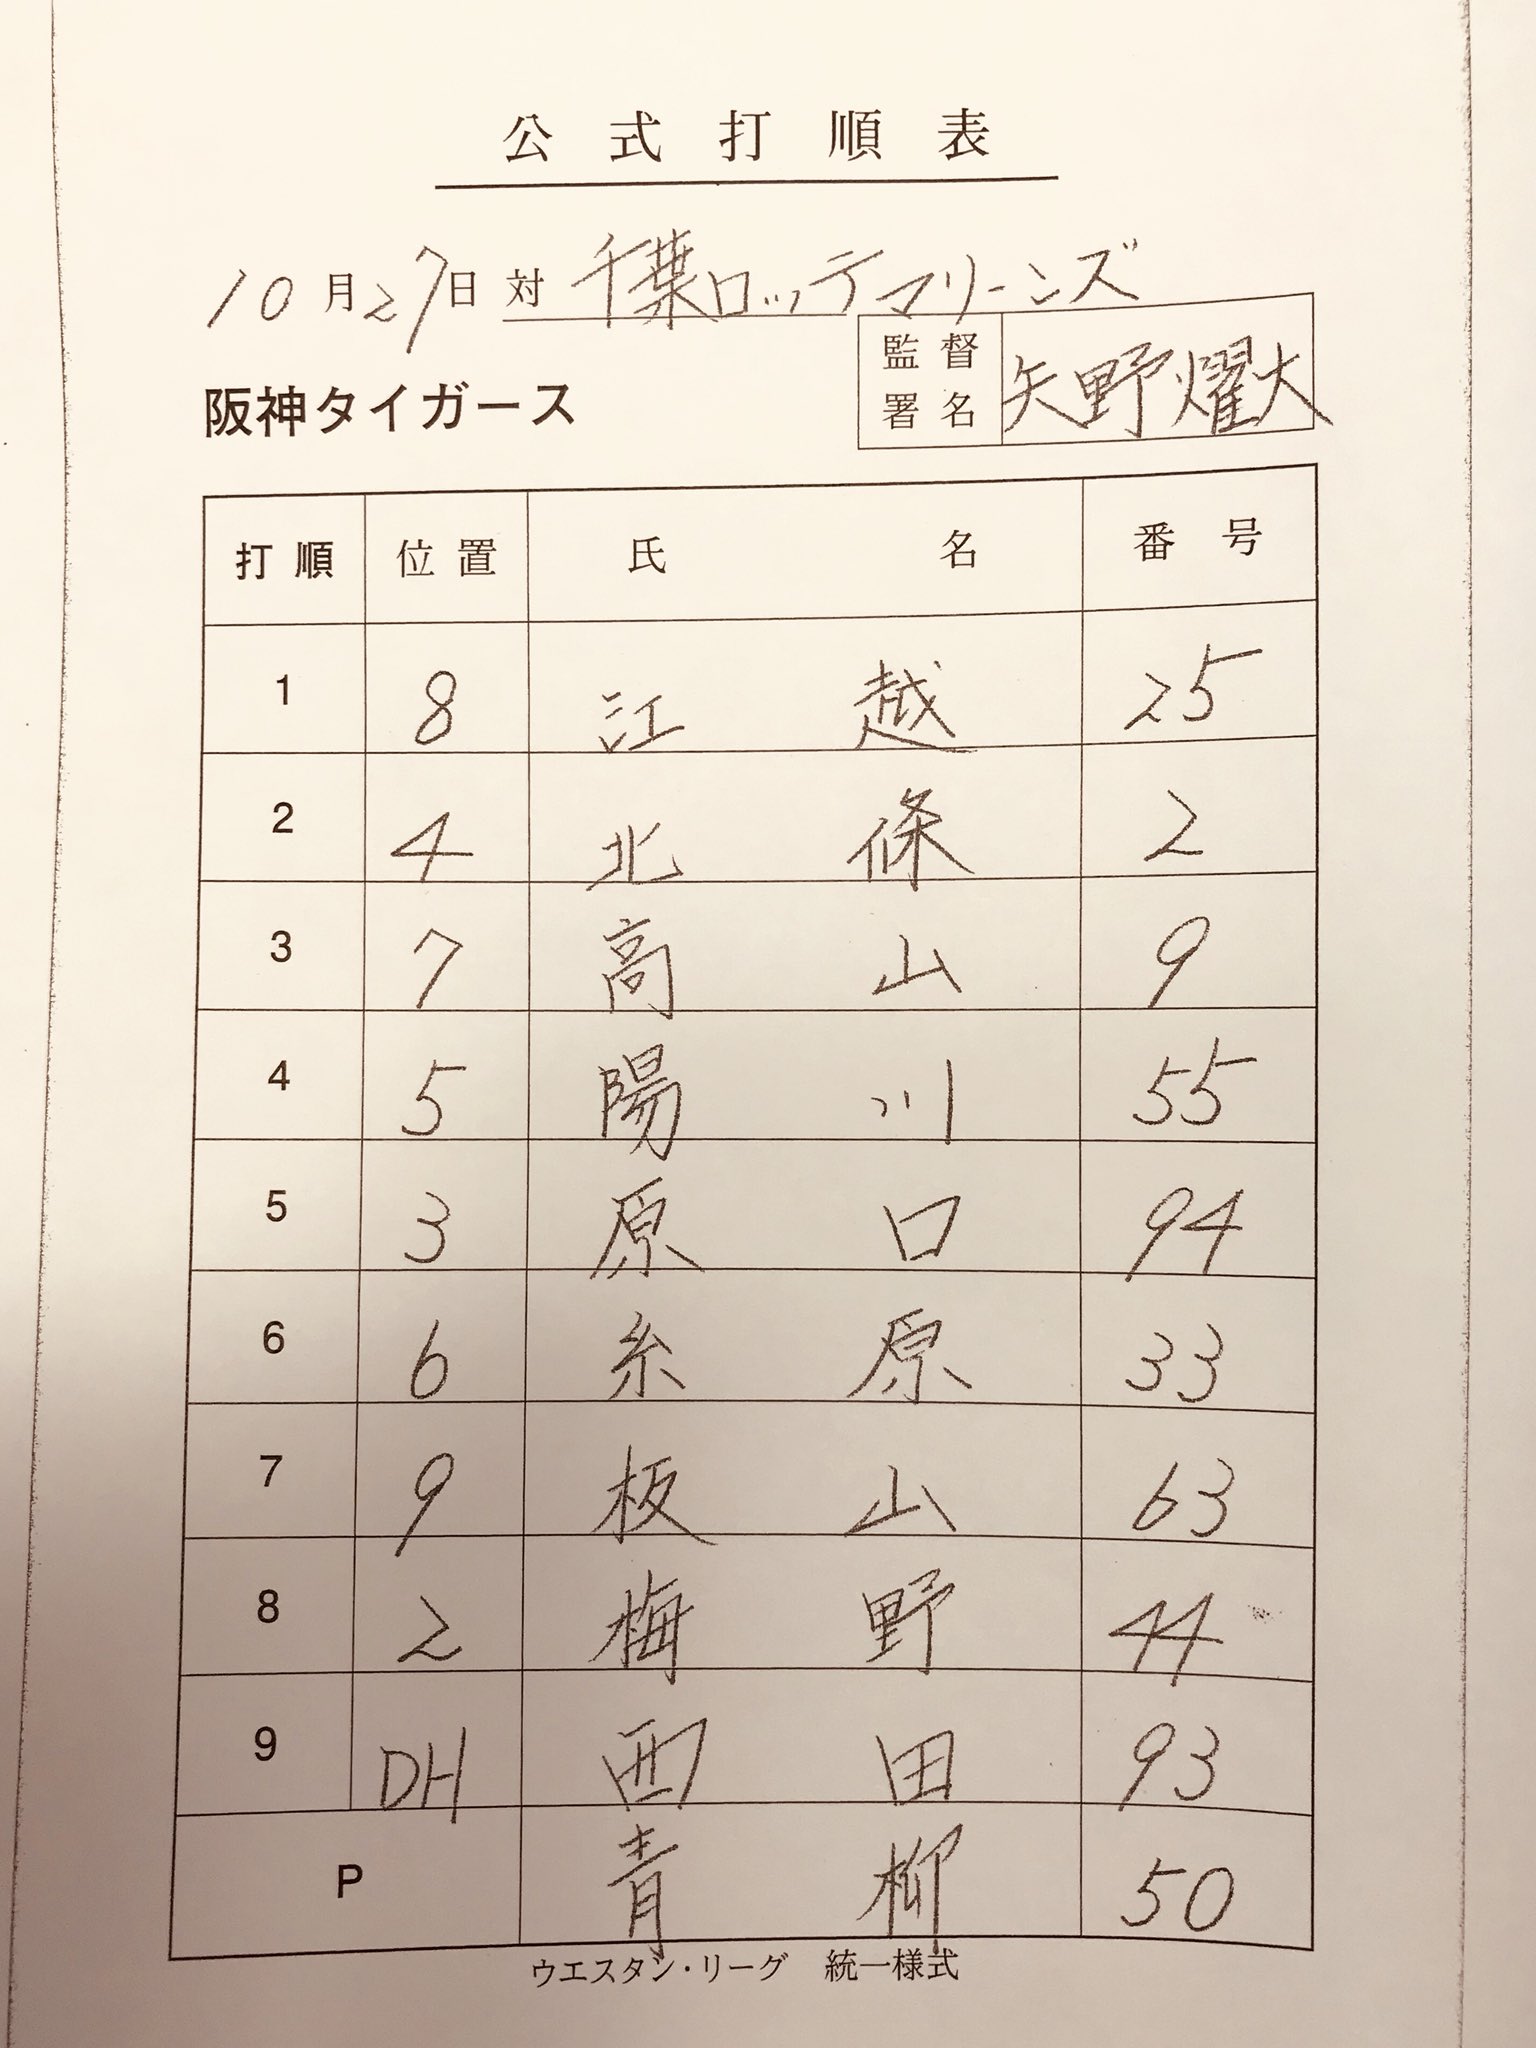 公式打順表
10月27日 対 千葉ロッテマリーンズ
監督署名 矢野燿大
阪神タイガース
打順 位置 氏名 番号
1 8 江越 25
2 4 北條 2
3 7 高山 9
4 5 陽川 55
5 3 原口 94
6 6 糸原 33
7 9 板山 63
8 2 梅野 44
9 DH 西田 93
P 青柳 50
ウエスタン・リーグ 統一様式